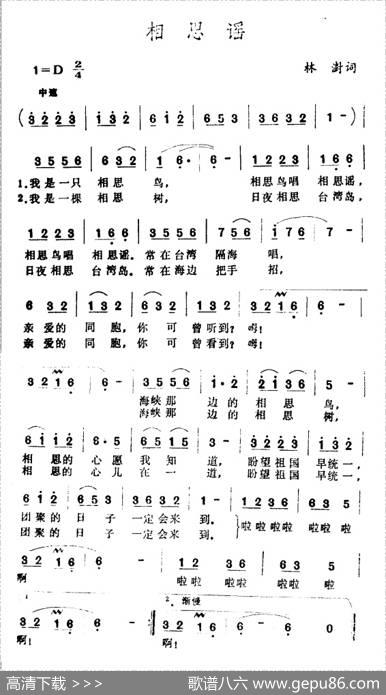 相思谣
1=D 2/4
林 澍词
中速
(3 2 2 3 | 1 3 2 | 6 1 2 | 6 5 3 | 3 6 3 2 | 1 - )
3 5 5 6 | 6 3 2 | 1 6· | 6 - | 3 2 2 3 | 1 6 6
1.我是一只 相思 鸟, 相思鸟唱 相思谣,
2.我是一棵 相思 树, 日夜相思 台湾岛,
1 2 2 3 | 1 6 6 | 3 5 5 6 | 7 5 6 | 1 7 6 | 7 -
相思鸟唱 相思谣. 常在台湾 隔海 唱,
日夜相思 台湾岛. 常在海边 把手 招,
6 3 2 | 1 3 2 | 6 1 2 | 6 5 3 | 3 2 1 6 | 6 -
亲爱的 同胞,你可 曾听到? 啊!
亲爱的 同胞,你可 曾看到? 啊!
3 2 1 6 | 6 - | 3 5 5 6 | 1· 2 | 2 1 3 6 | 5 -
海峡那 边的 相思 鸟,
海峡那 边的 相思 树,
6 1 1 2 | 6· 5 | 6 5 1 5 | 3 - | 3 2 2 3 | 1 6 6
相思的 心愿 我知 道, 盼望祖国 早统一,
相思的 心儿 在一 道, 盼望祖国 早统一,
6 1 2 | 6 5 3 | 3 6 3 2 | 1 - | 1 2 3 6 | 6 3 5
团聚的 日子 一定会来 到. 啦啦啦啦 啦啦啦
团聚的 日子 一定会来 到.
3 2 1 6 | 6 - | 1 2 | 3 6 | 6 3 | 5 -
啊! 啦啦 啦啦 啦啦 啦
2. 渐慢
3 2 1 6 | 6 - | 3 2 | 1 6 | 6 - | 6 0
啊! 啊!
高清下载 >>> 歌谱八六 www.gepu86.com